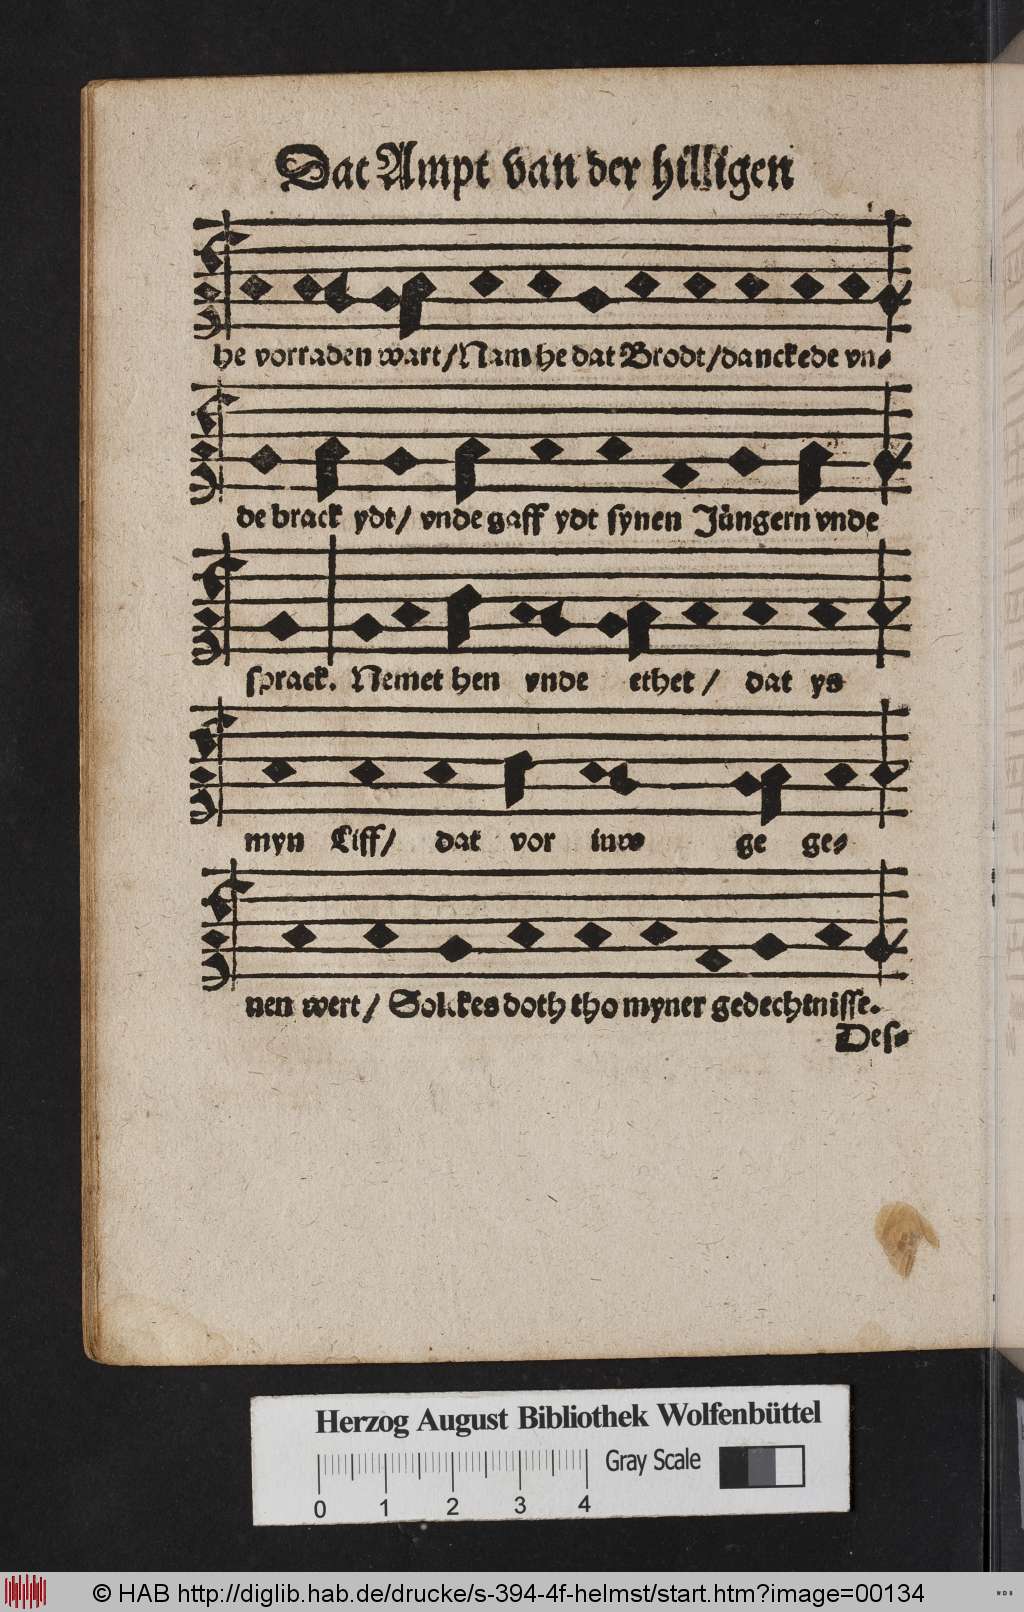 Dat Ampt van der hilligen
he vorraden wart/Nam he dat Brodt/danckede vn⸗
de brack ydt/ vnde gaff ydt synen Jüngern vnde
sprack. Nemet hen vnde ethet/ dat ys
myn Liff/ dat vor iuw ge ge⸗
nen wert/ Solckes doth tho myner gedechtnisse.
Des⸗
Herzog August Bibliothek Wolfenbüttel
Gray Scale
0 1 2 3 4
© HAB http://diglib.hab.de/drucke/s-394-4f-helmst/start.htm?image=00134